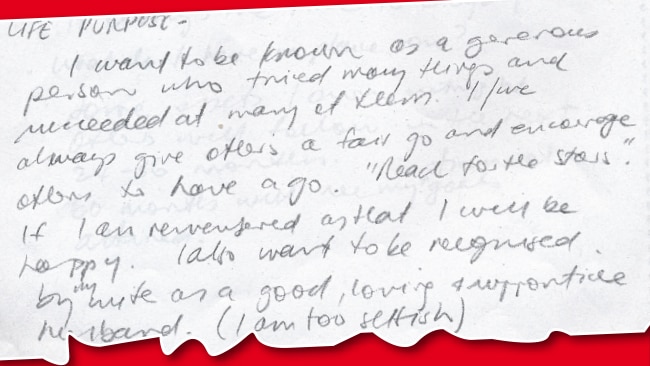 LIFE PURPOSE -
I want to be known as a generous
person who tried many things and
succeeded at many of them. I/we
always give others a fair go and encourage
others to have a go. "Reach for the stars".
If I am remembered as that I will be
happy. I also want to be recognised
by my wife as a good, loving & supportive
husband. (I am too selfish)